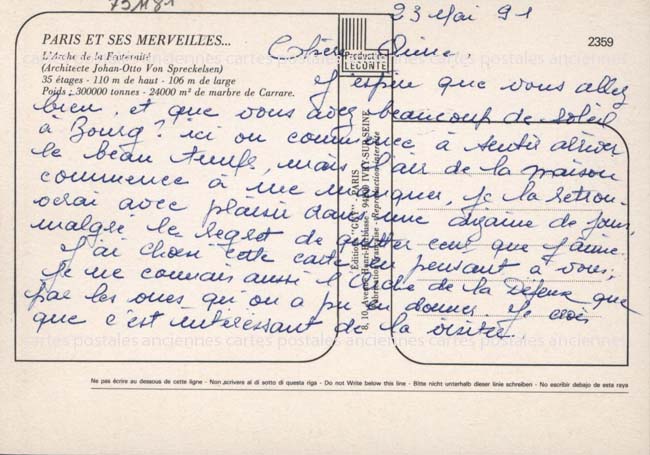 75M81
23 Mai 91
PARIS ET SES MERVEILLES...
L'Arche de la Fraternité
(Architecte Johan-Otto Von Spreckelsen)
35 étages - 110 m de haut - 106 m de large
Poids : 300000 tonnes - 24000 m² de marbre de Carrare.
productions
LECONTE
2359
Chère Aimée,
J'espère que vous allez
bien, et que vous avez beaucoup de soleil
à Bourg? ici on commence à sentir arriver
le beau temps, mais l'air de la maison
commence à me manquer, je la retrou-
verai avec plaisir dans une dizaine de jours,
malgré le regret de quitter ceux que j'aime.
J'ai choisi cette carte en pensant à vous,
je ne connais aussi l'Arche de la Défense que
par les vues qu'on a pu en donner. Je crois
que c'est intéressant de la visiter.
Éditions "GUY" - PARIS
8, 10, Avenue Henri-Barbusse - 94200 IVRY-SUR-SEINE
Fabrication Française - Reproduction interdite
cartes postales anciennes cartes postales anciennes cartes postales anciennes
Ne pas écrire au dessous de cette ligne - Non scrivere al di sotto di questa riga - Do not Write below this line - Bitte nicht unterhalb dieser linie schreiben - No escribir debajo de esta raya